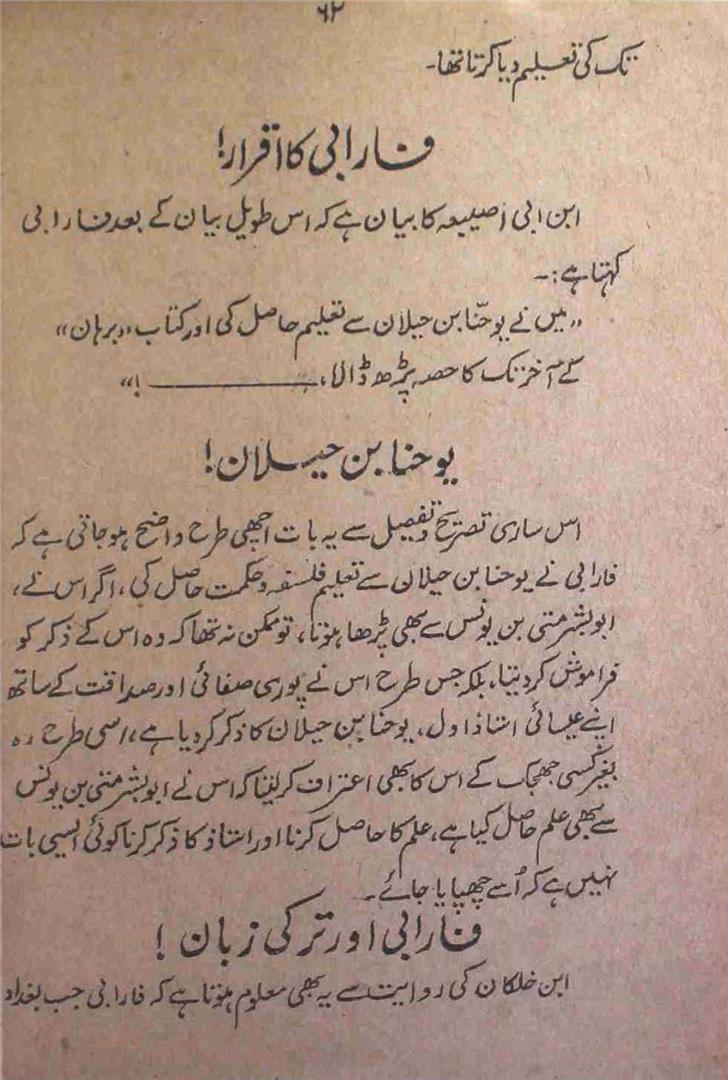 ۶۲
تک کی تعلیم دیا کرتا تھا۔
فارابی کا اقرار!
ابن ابی اصیبیعہ کا بیان ہے کہ اس طویل بیان کے بعد فارابی
کہتا ہے:۔
"میں نے یوحنّا بن حیلان سے تعلیم حاصل کی اور کتاب "برہان"
کے آخر تک کا حصہ پڑھ ڈالا، ــــــــــــــ !"
یوحنا بن حیلان!
اس ساری تصریح و تفصیل سے یہ بات اچھی طرح واضح ہو جاتی ہے کہ
فارابی نے یوحنا بن حیلان سے تعلیم فلسفہ و حکمت حاصل کی، اگر اس نے،
ابو بشر متی بن یونس سے بھی پڑھا ہوتا، تو ممکن نہ تھا کہ وہ اس کے ذکر کو
فراموش کر دیتا، بلکہ جس طرح اس نے پوری صفائی اور صداقت کے ساتھ
اپنے عیسائی استاذ اول، یوحنا بن حیلان کا ذکر کر دیا ہے، اسی طرح وہ
بغیر کسی جھجک کے اس کا بھی اعتراف کر لیتا کہ اس نے ابو بشر متی بن یونس
سے بھی علم حاصل کیا ہے، علم کا حاصل کرنا اور استاذ کا ذکر کرنا کوئی ایسی بات
نہیں ہے کہ اُسے چھپایا جائے۔
فارابی اور ترکی زبان !
ابن خلکان کی روایت سے یہ بھی معلوم ہوتا ہے کہ فارابی جب بغداد